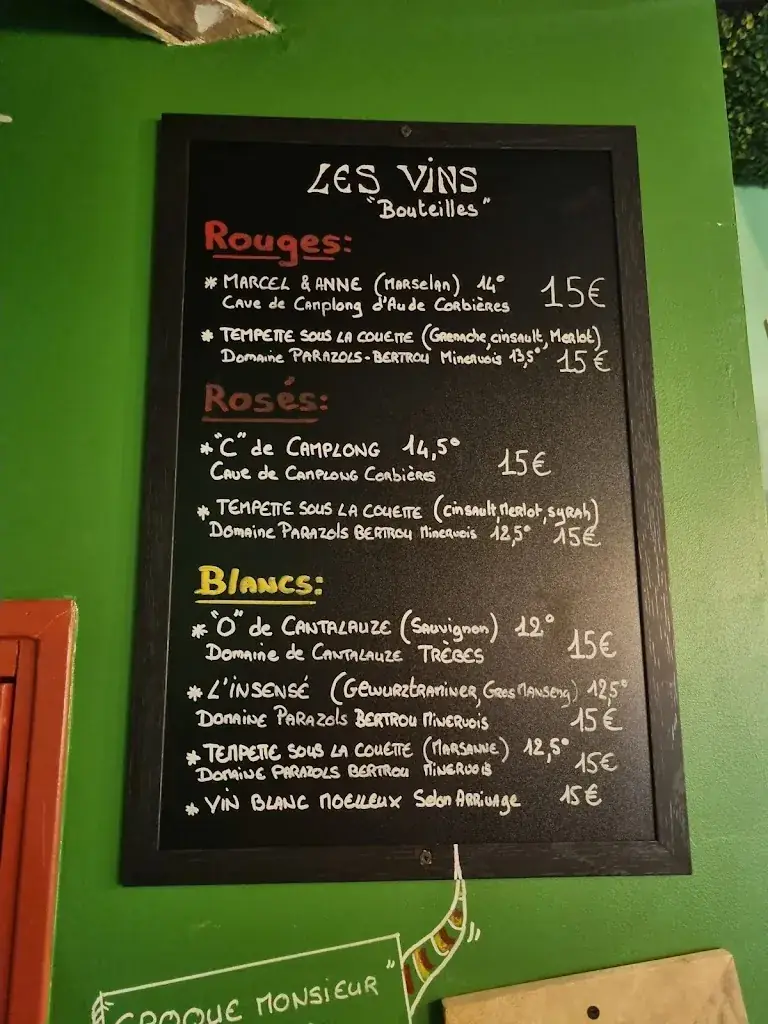 LES VINS
"Bouteilles"
Rouges:
* MARCEL & ANNE (Marselan) 14° 15€
Cave de Camplong d'Aude Corbières
* TEMPETTE SOUS LA COUETTE (Grenache, cinsault, Merlot)
Domaine PARAZOLS-BERTROU Minervois 13,5° 15€
Rosés:
* "C" de CAMPLONG 14,5°
Cave de CAMPLONG Corbières 15€
* TEMPETTE SOUS LA COUETTE (cinsault, Merlot, syrah)
Domaine PARAZOLS BERTROU Minervois 12,5° 15€
Blancs:
* "O" de CANTALAUZE (Sauvignon) 12°
Domaine de CANTALAUZE TRÈBES 15€
* L'INSENSÉ (Gewurztraminer, Gros Manseng) 12,5°
Domaine Parazols BERTROU Minervois 15€
* TEMPETTE SOUS LA COUETTE (MARSANNE) 12,5°
Domaine PARAZOLS BERTROU MINERVOIS 15€
* VIN BLANC MOELLEUX Selon Arrivage 15€
"CROQUE MONSIEUR"